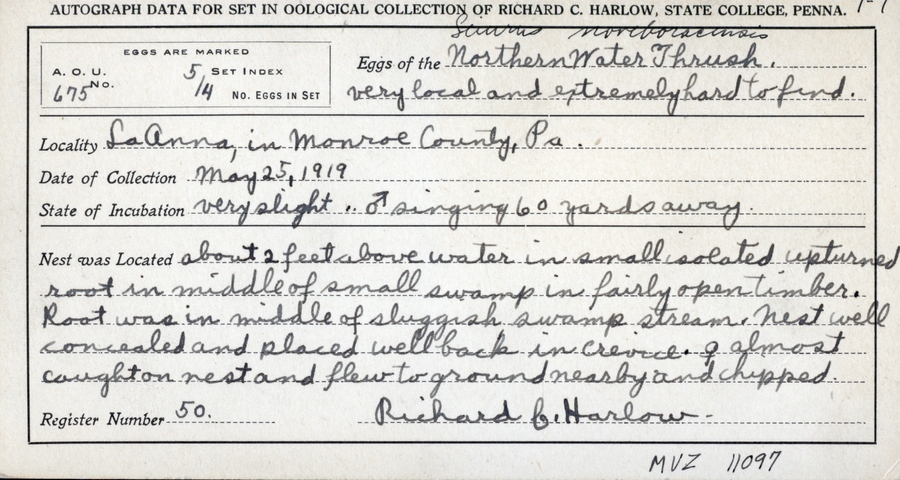 AUTOGRAPH DATA FOR SET IN OOLOGICAL COLLECTION OF RICHARD C. HARLOW, STATE COLLEGE, PENNA. 1-1
Seiurus noveboracensis
EGGS ARE MARKED
A. O. U. No. 675
5/ SET INDEX
/4 No. EGGS IN SET
Eggs of the Northern Water Thrush.
very local and extremely hard to find.
Locality LaAnna, in Monroe County, Pa.
Date of Collection May 25, 1919
State of Incubation very slight .. ♂ singing 60 yards away.
Nest was Located about 2 feet above water in small isolated upturned
root in middle of small swamp in fairly open timber.
Root was in middle of sluggish swamp stream. Nest well
concealed and placed well back in crevice. ♀ almost
caught on nest and flew to ground nearby and chipped.
Register Number 50.
Richard C. Harlow
MVZ 11097